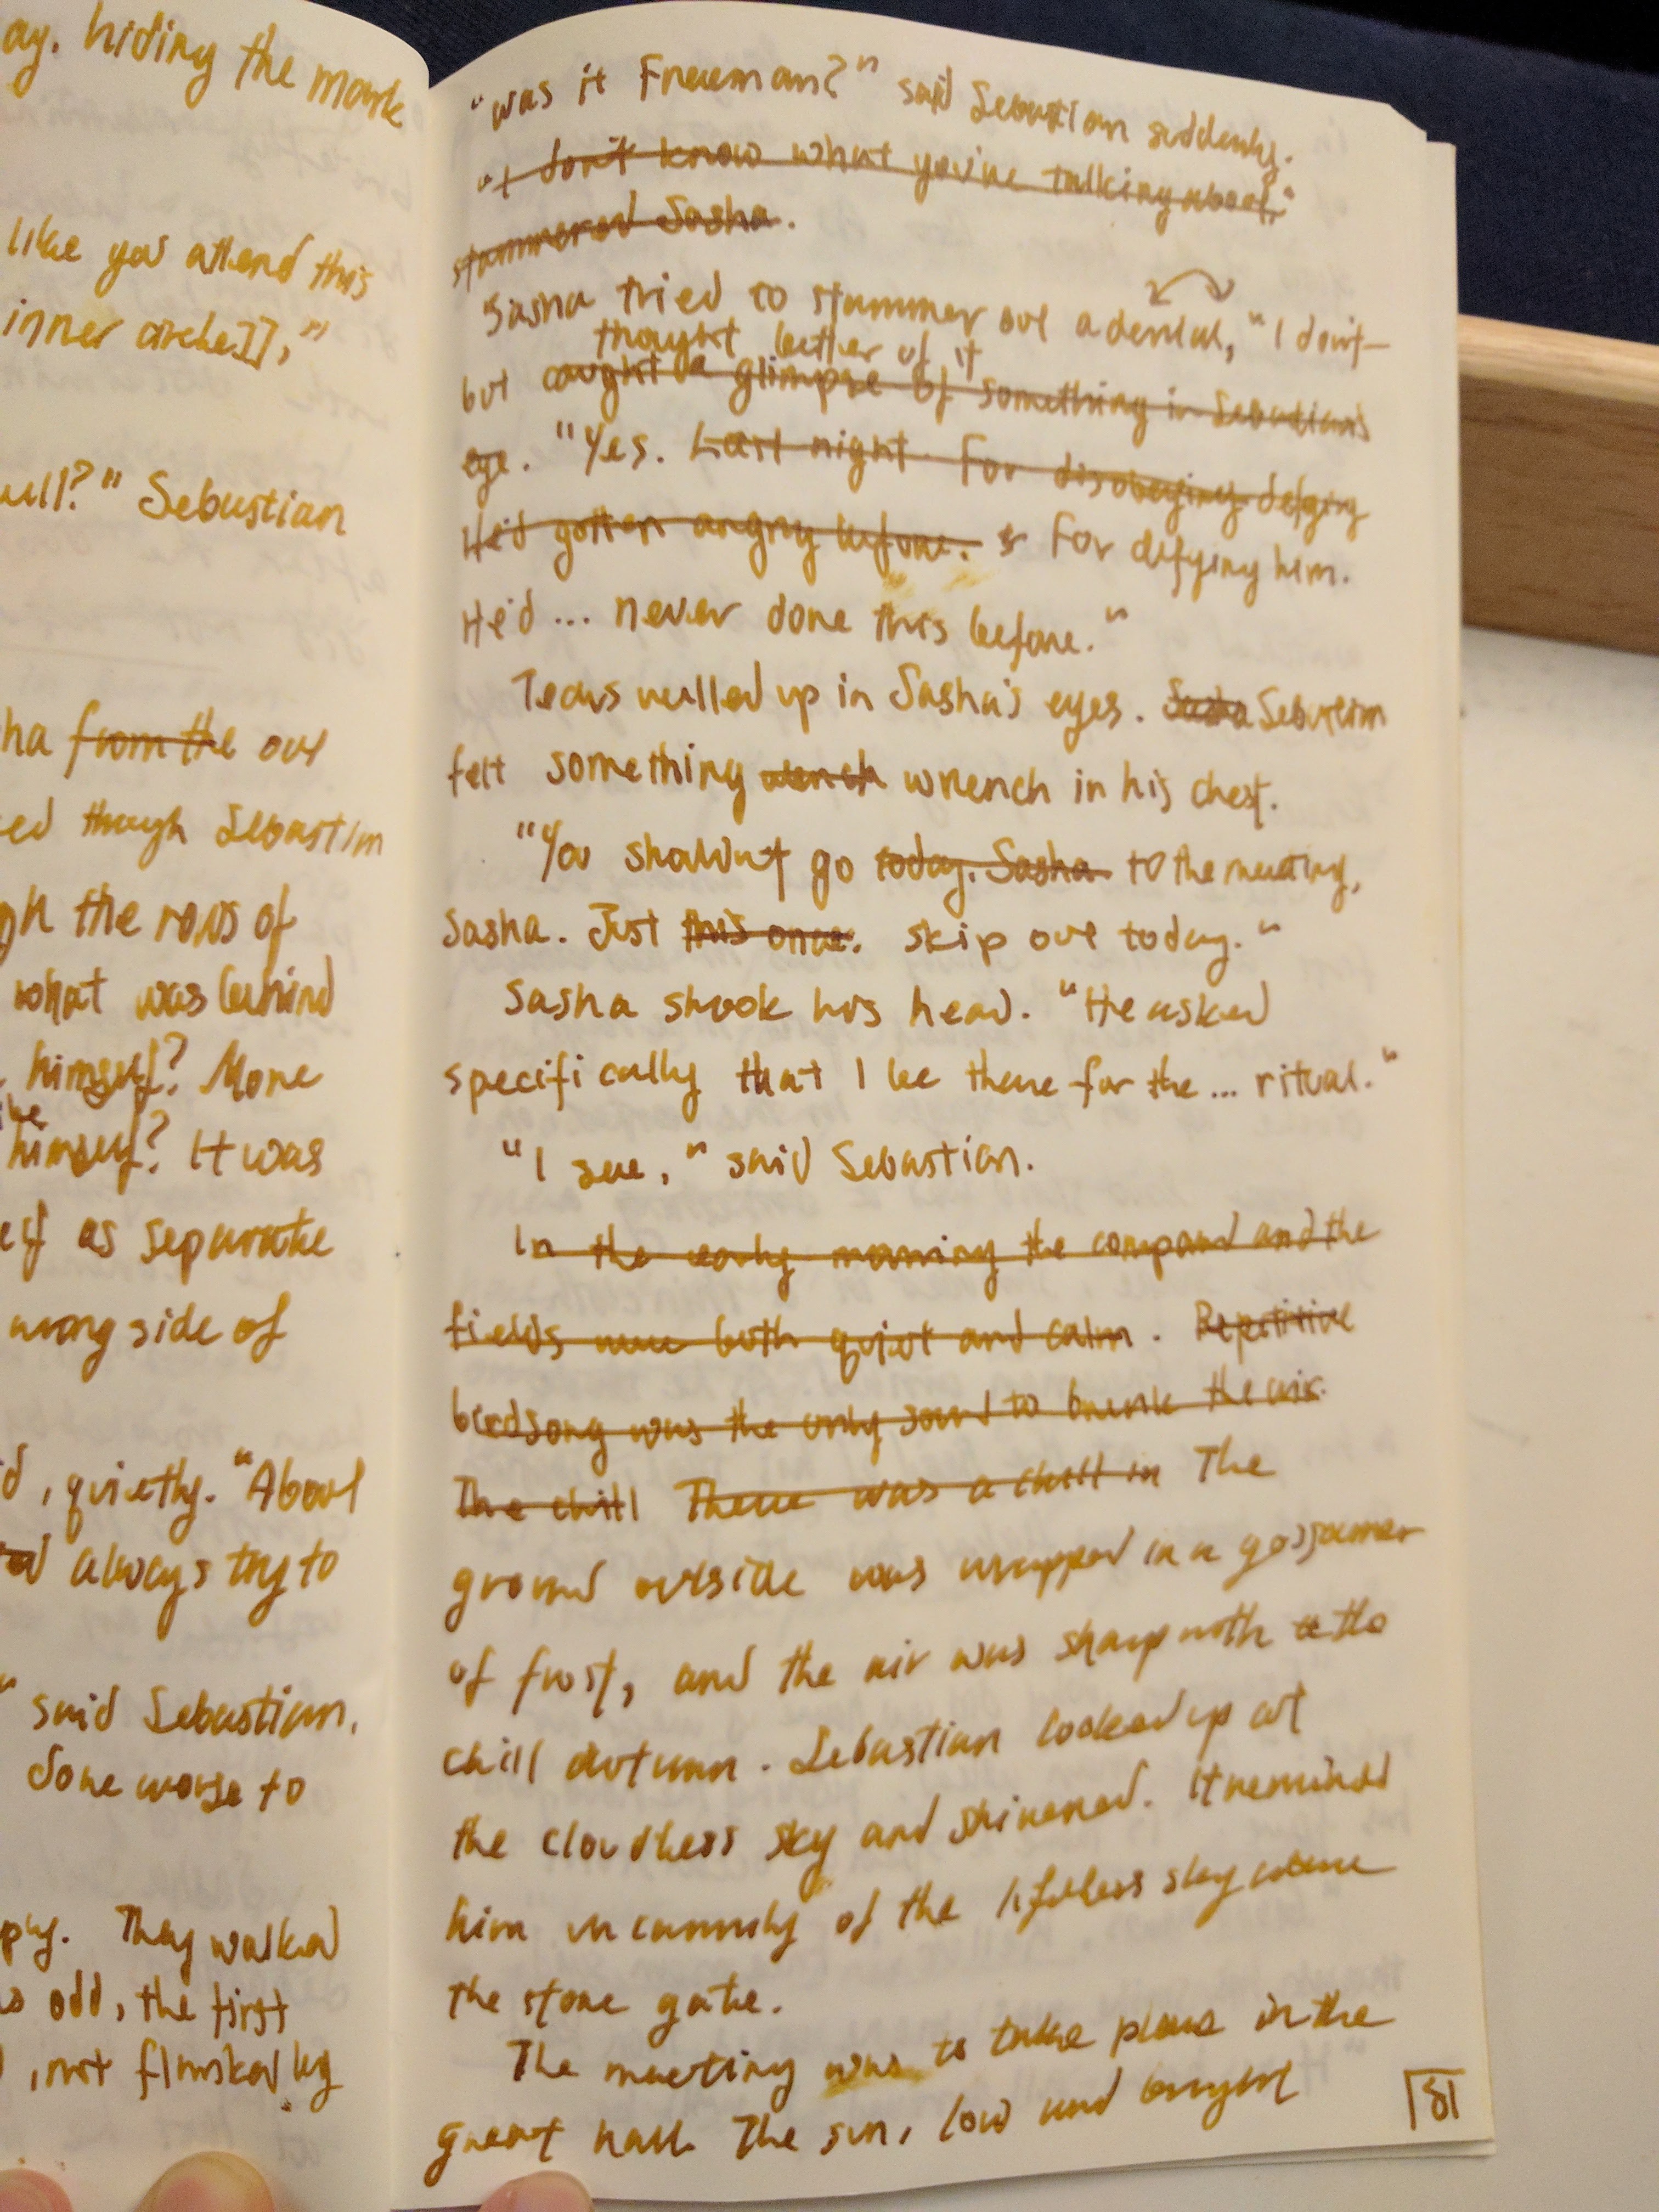 ay. hiding the mark
like you attend this
inner circle]],"
ull?" Sebastian
ha from the out
ed though Sebastian
gh the rows of
what was behind
himself? More
like
himself? It was
elf as separate
wrong side of
d, quietly. "About
always try to
" said Sebastian.
done worse to
py. They walked
s odd, the first
, not flanked by
"was it Freeman?" said Sebastian suddenly.
"I don't know what you're talking about,"
stammered Sasha.
Sasha tried to stammer out a denial, "I don't—
thought better of it
but caught a glimpse of something in Sebastian's
eye. "Yes. Last night. For disobeying defying
He'd gotten angry before. For defying him.
He'd... never done this before."
Tears welled up in Sasha's eyes. Sasha Sebastian
felt something wench wrench in his chest.
"You shouldn't go today. Sasha to the meeting,
Sasha. Just this once. skip out today."
Sasha shook his head. "He asked
specifically that I be there for the... ritual."
"I see," said Sebastian.
In the early morning the compound and the
fields were both quiet and calm. Repetitive
birdsong was the only sound to break the air.
The chill There was a chill in The
ground outside was wrapped in a gossamer
of frost, and the air was sharp with the
chill autumn. Sebastian looked up at
the cloudless sky and shivered. It reminded
him uncannily of the lifeless sky above
the stone gate.
The meeting was to take place in the
great hall. The sun, low and bright
81